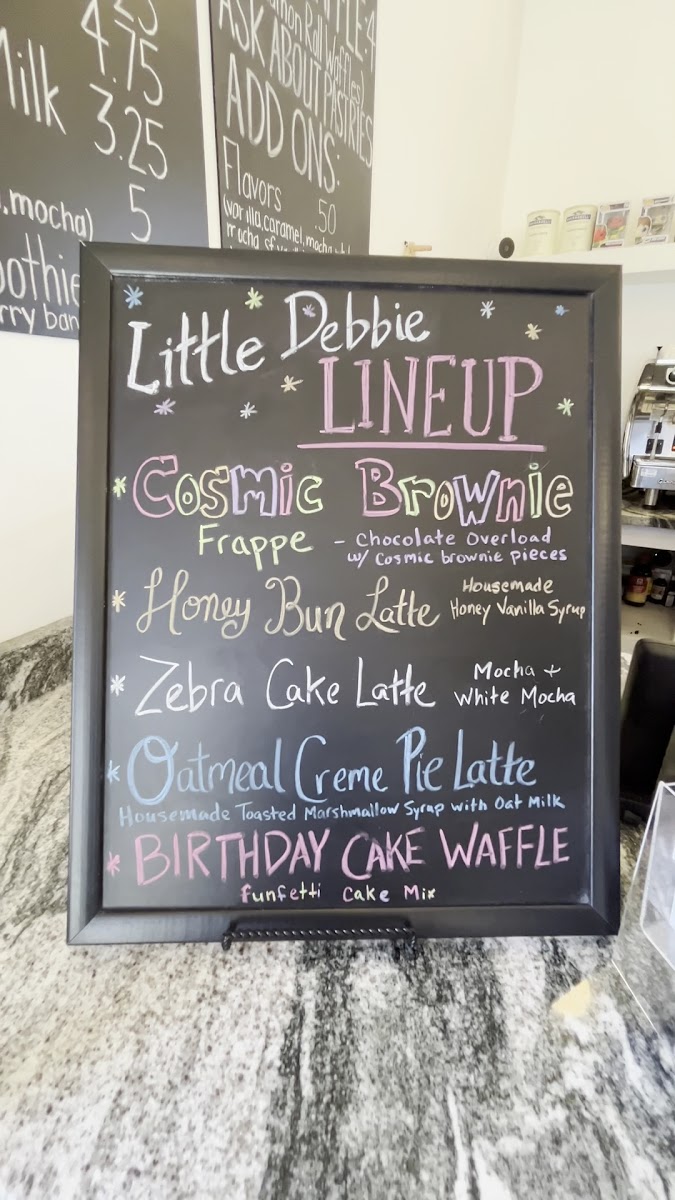 4.75
Milk 3.25
5
mocha)
ASK ABOUT PASTRIES
ADD ONS:
Flavors .50
Little Debbie
LINEUP
* Cosmic Brownie
Frappe - Chocolate Overload
w/ Cosmic brownie pieces
* Honey Bun Latte Housemade
Honey Vanilla Syrup
* Zebra Cake Latte Mocha +
White Mocha
* Oatmeal Creme Pie Latte
Housemade Toasted Marshmallow Syrup with Oat Milk
* BIRTHDAY CAKE WAFFLE
funfetti cake mix